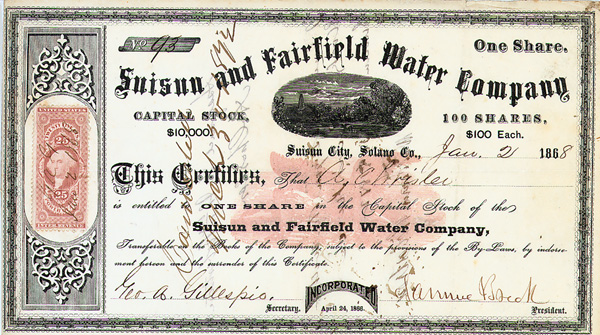 No 93
One Share.
Suisun and Fairfield Water Company
CAPITAL STOCK,
$10,000.
100 SHARES,
$100 Each.
Suisun City, Solano Co., Jan. 2 1868
This Certifies, That
is entitled to ONE SHARE in the Capital Stock of the
Suisun and Fairfield Water Company,
Transferable on the Books of the Company, subject to the provisions of the By-Laws, by indorse-
ment hereon and the surrender of this Certificate.
Geo. A. Gillespie
Secretary.
INCORPORATED
April 24, 1866.
President.
UNITED STATES
25 25
INTER. REVENUE